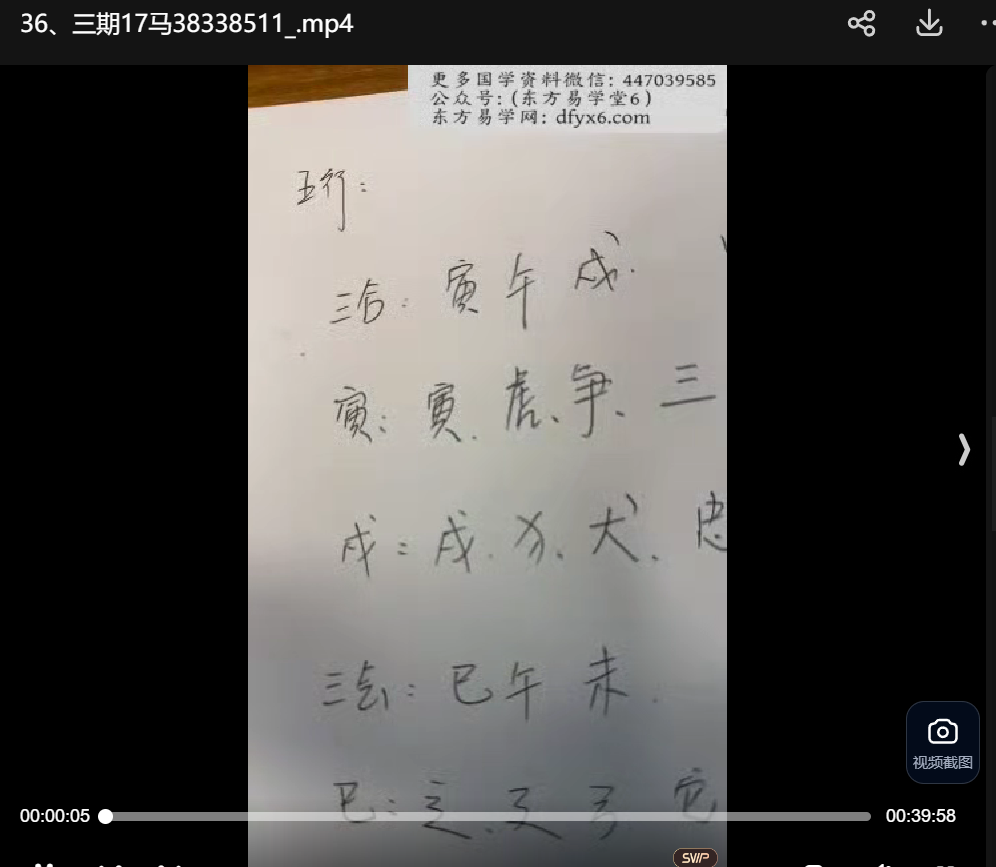 36、三期17马38338511_.mp4
更多国学资料微信：447039585
公众号：(东方易学堂6)
东方易学网：dfyx6.com
五行：
三合：寅 午 戌.
寅：寅、虎、争、三
戌：戌.犭、犬、忠
三会：巳 午 未.
巳：辶、廴、弓、它
视频截图
00:00:05
00:39:58
SVIP